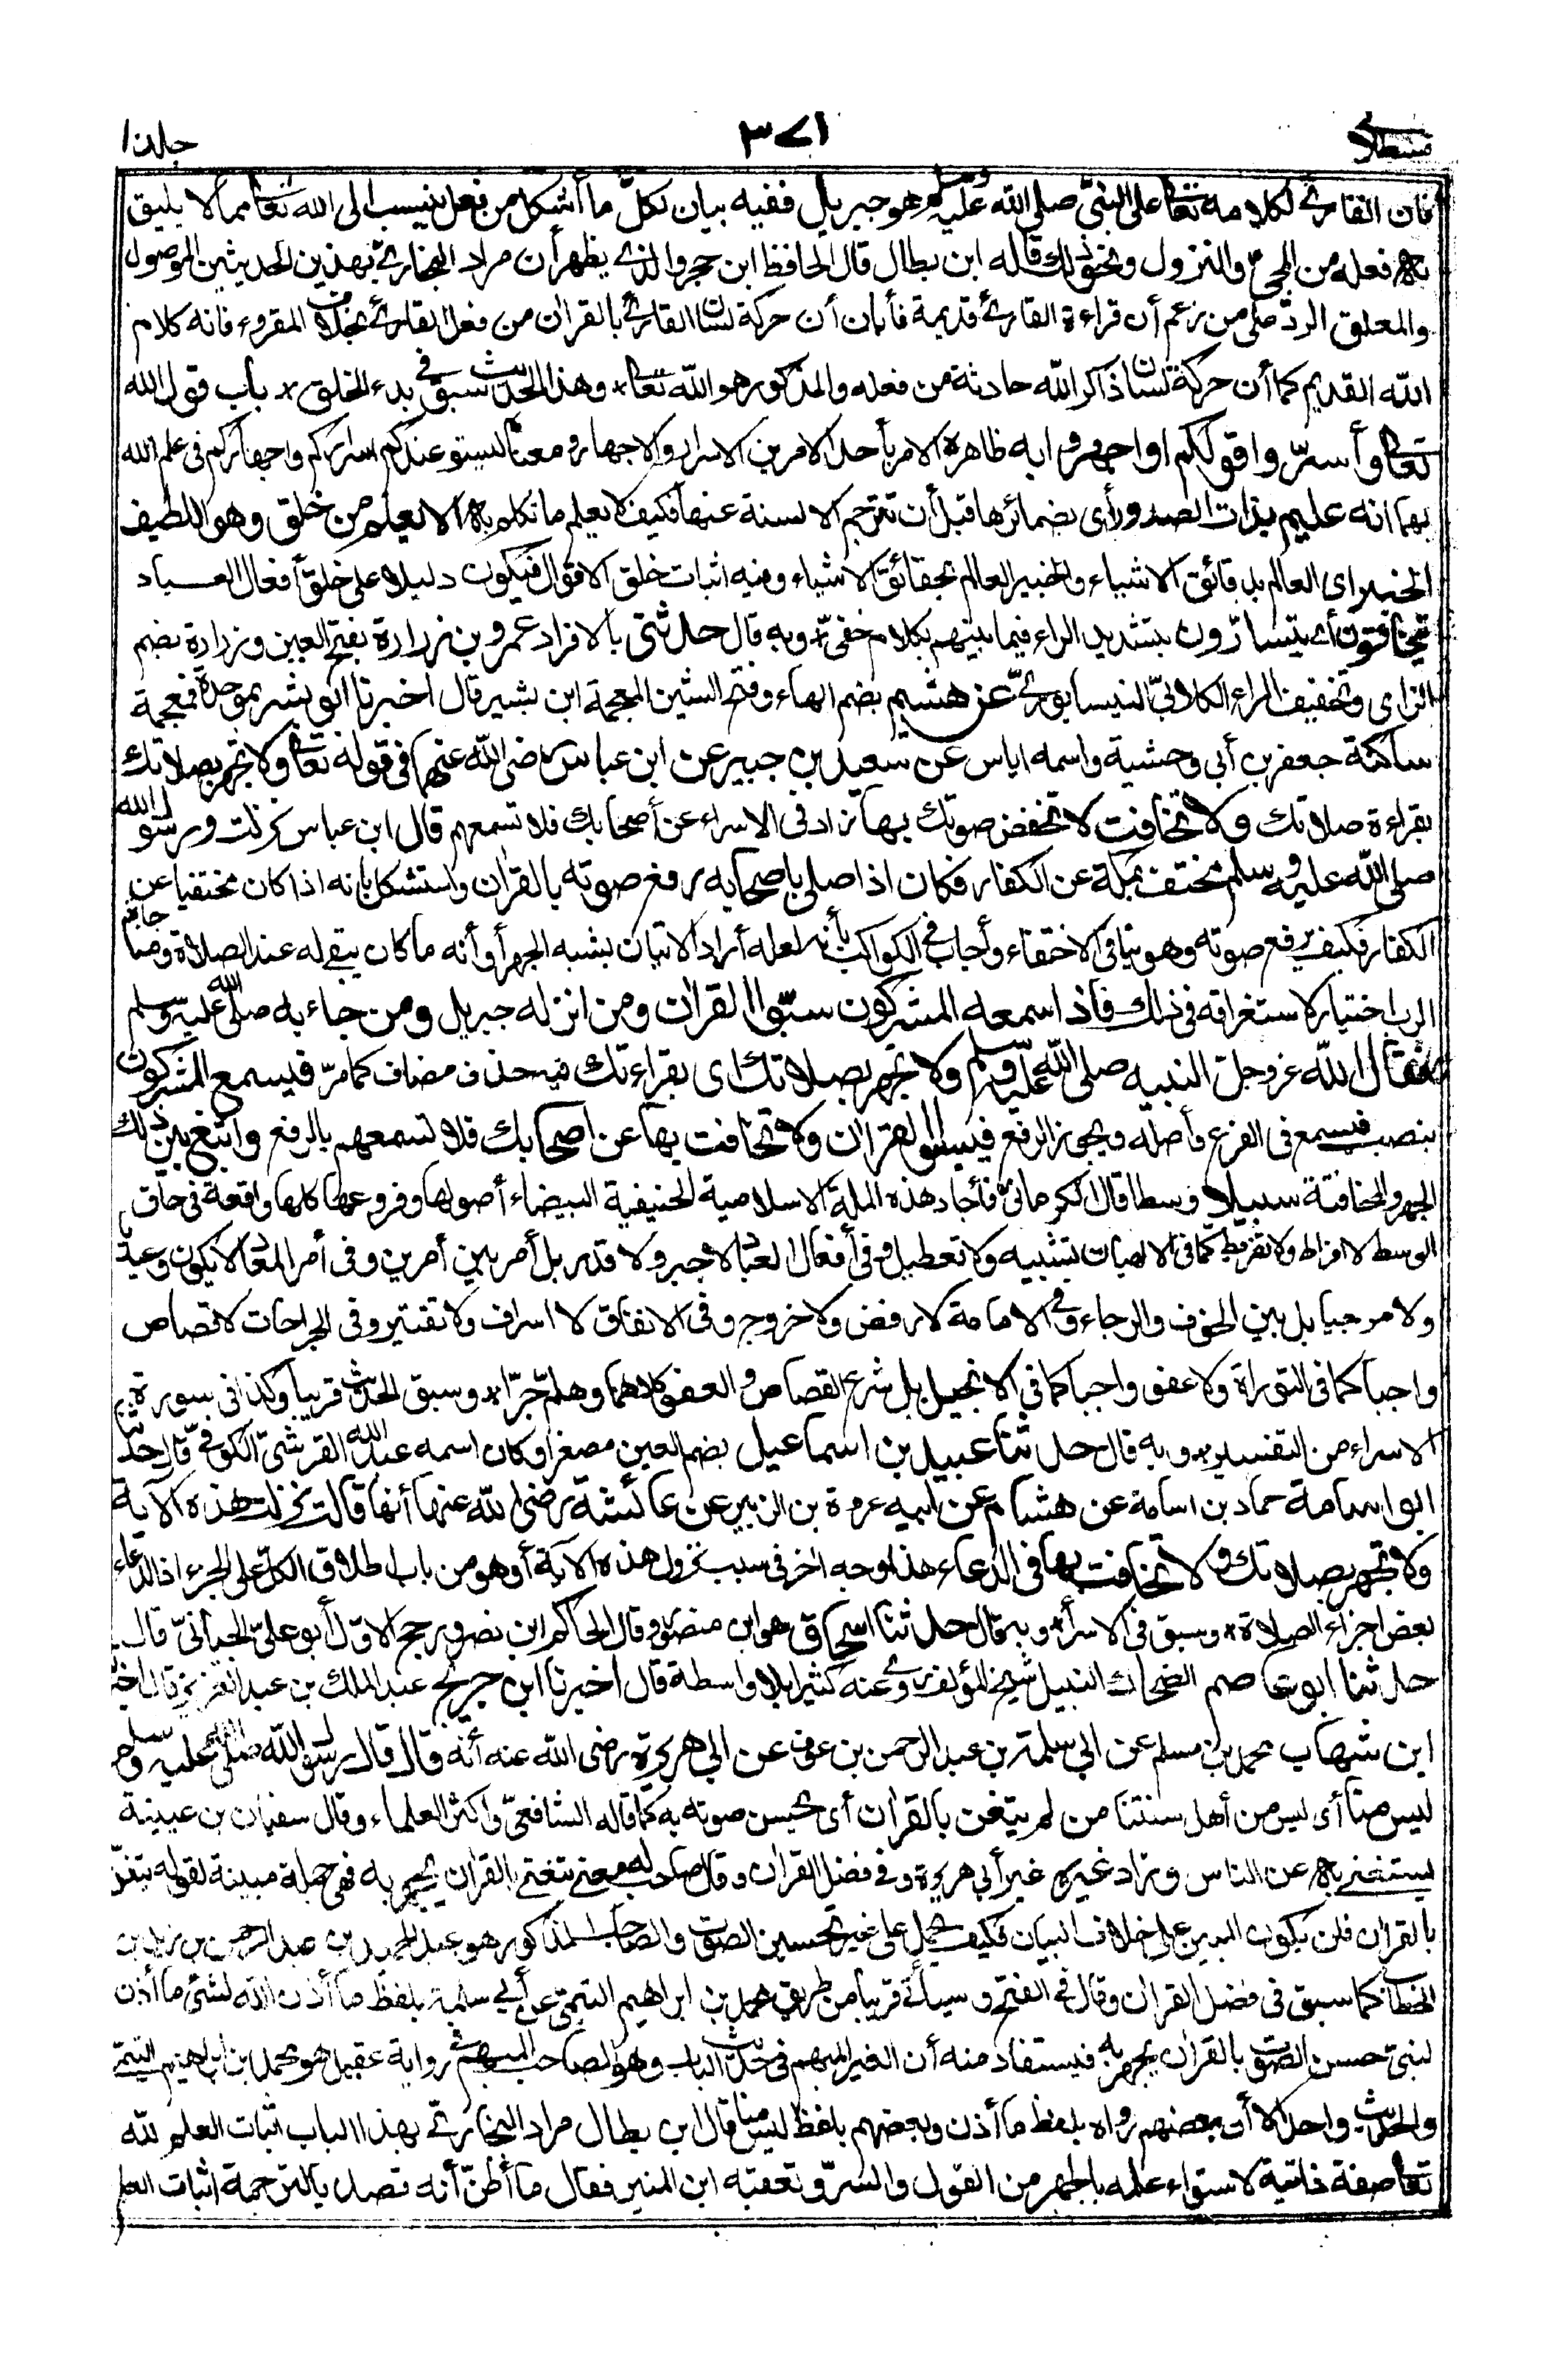 قسطلانی ٣٧١ جلد ١٠
فان القارئ لكلامه تعالى على النبي صلى الله عليه وسلم هو جبريل ففيه بيان لكل ما أشكل من فعل ينسب الى الله تعالى مما لا يليق
به فعله من المجيء والنزول ونحو ذلك قاله ابن بطال قال الحافظ ابن حجر والذي يظهر أن مراد البخاري بهذين الحديثين الموصول
والمعلق الرد على من زعم أن قراءة القارئ قديمة فأبان أن حركة لسان القارئ بالقران من فعل القارئ بخلاف المقروء فانه كلام
الله القديم كما أن حركة لسان ذاكر الله حادثة من فعله والمذكور هو الله تعالى * وهذا الحديث سبق في بدء الخلق * باب قول الله
تعالى وأسرّوا قولكم او اجهروا به ظاهره الامر بأحد الامرين الاسرار والاجهار ومعناه ليستو عندكم اسراركم واجهاركم فى علم الله
بهما انه عليم بذات الصدور أى بضمائرها قبل أن تترجم الالسنة عنها فكيف لا يعلم ما تكلم به الا يعلم من خلق وهو اللطيف
الخبير اى العالم بدقائق الاشياء والخبير العالم بحقائق الاشياء وفيه اثبات خلق الاقوال فيكون دليلا على خلق أفعال العباد
يتخافتون أي يتسارّون بتشديد الراء فيما بينهم بكلام خفىّ * وبه قال حدثنى بالافراد عمرو بن زرارة بفتح العين وزرارة بضم
الزاى وتخفيف الراء الكلابىّ النيسابورىّ عن هشيم بضم الهاء وفتح الشين المعجمة ابن بشير قال اخبرنا ابو بشر بموحدة فمعجمة
ساكنة جعفر بن أبي وحشية واسمه اياس عن سعيد بن جبير عن ابن عباس رضى الله عنهما فى قوله تعالى ولا تجهر بصلاتك
بقراءة صلاتك ولا تخافت لا تخفض صوتك بها زاد فى الاسراء عن أصحابك فلا تسمعهم قال ابن عباس نزلت ورسول الله
صلى الله عليه وسلم مختف بمكة عن الكفار فكان اذا صلى بأصحابه رفع صوته بالقران واستشكل بأنه اذا كان مختفيا عن
الكفار فكيف يرفع صوته وهو ينافى الاختفاء وأجاب فى الكواكب بأنه لعله أراد الاتيان بشبه الجهر أو أنه ما كان يبقى له عند الصلاة ومناجاة
الرب اختيار لاستغراقه فى ذلك فاذا سمعه المشركون سبّوا القران ومن انزله جبريل ومن جاء به صلى الله عليه وسلم
فقال الله عز وجل لنبيه صلى الله عليه وسلم ولا تجهر بصلاتك اى بقراءتك فيه حذف مضاف كما مرّ فيسمع المشركون
بنصب فيسمع فى الفرع وأصله ويجوز الرفع فيسبوا القران ولا تخافت بها عن اصحابك فلا تسمعهم بالرفع وابتغ بين ذلك
الجهر والمخافتة سبيلا وسطا قال الكرمانىّ فأجاد هذه الملة الاسلامية الحنيفية البيضاء أصولها وفروعها كلها واقعة فى حاق
الوسط لا افراط ولا تفريط كما فى الالهيات لا تشبيه ولا تعطيل وفى أفعال العباد لا جبر ولا قدر بل أمر بين أمرين وفى أمر المعاد لا يكون وعيديا
ولا مرجيا بل بين الخوف والرجاء وفى الامامة لا رفض ولا خروج وفى الانفاق لا اسراف ولا تقتير وفى الجراحات لا قصاص
واجبا كما فى التوراة ولا عفو واجبا كما فى الانجيل بل شرع القصاص والعفو كلاهما وهلمّ جرّا * وسبق الحديث قريبا وكذا فى سورة
الاسراء من التفسير * وبه قال حدثنا عبيد بن اسماعيل بضم العين مصغرا وكان اسمه عبد الله القرشىّ الكوفىّ قال حدثنا
ابو اسامة حماد بن اسامة عن هشام عن ابيه عروة بن الزبير عن عائشة رضى الله عنها أنها قالت نزلت هذه الآية
ولا تجهر بصلاتك ولا تخافت بها فى الدعاء هذا وجه اخر فى سبب نزول هذه الآية أو هو من باب اطلاق الكل على الجزء اذ الدعاء
بعض اجزاء الصلاة * وسبق فى الاسراء * وبه قال حدثنا اسحاق هو ابن منصور وقال الحاكم ابن نصر ورجح الاول أبو علىّ الجيانىّ قال
حدثنا ابو عاصم الضحاك النبيل شيخ المؤلف روى عنه كثيرا بلا واسطة قال اخبرنا ابن جريج عبد الملك بن عبد العزيز قال اخبرنا
ابن شهاب محمد بن مسلم عن ابي سلمة بن عبد الرحمن بن عوف عن ابي هريرة رضى الله عنه أنه قال قال رسول الله صلى الله عليه وسلم
ليس منا أى ليس من أهل سنتنا من لم يتغن بالقران أى يحسن صوته به كما قاله الشافعىّ واكثر العلماء وقال سفيان بن عيينة
يستغنى به عن الناس وزاد غيره غير أبي هريرة وفى فضل القران وقال صاحب له معنى يتغنى بالقران يجهر به فهى جملة مبينة لقوله يتغنّ
بالقران فلن يكون المبين على خلاف البيان فكيف يحمل على غير تحسين الصوت والصاحب المذكور هو عبد الحميد بن عبد الرحمن بن زيد بن
الخطاب كما سبق فى فضل القران وقال فى الفتح وسيأتى قريبا من طريق محمد بن ابراهيم التيمىّ عن أبي سلمة بلفظ ما أذن الله لشئ ما أذن
لنبىّ حسن الصوت بالقران يجهر به فيستفاد منه أن الغير المبهم فى حديث الباب وهو الصاحب المبهم فى رواية عقيل هو محمد بن ابراهيم التيمىّ
والحديث واحد الا أن بعضهم رواه بلفظ ما أذن وبعضهم بلفظ ليس منا قال ابن بطال مراد البخارىّ بهذا الباب اثبات العلم لله
تعالى صفة ذاتية لاستواء علمه بالجهر من القول والسرّ وتعقبه ابن المنير فقال ما أظنّ أنه قصد بالترجمة اثبات العلم